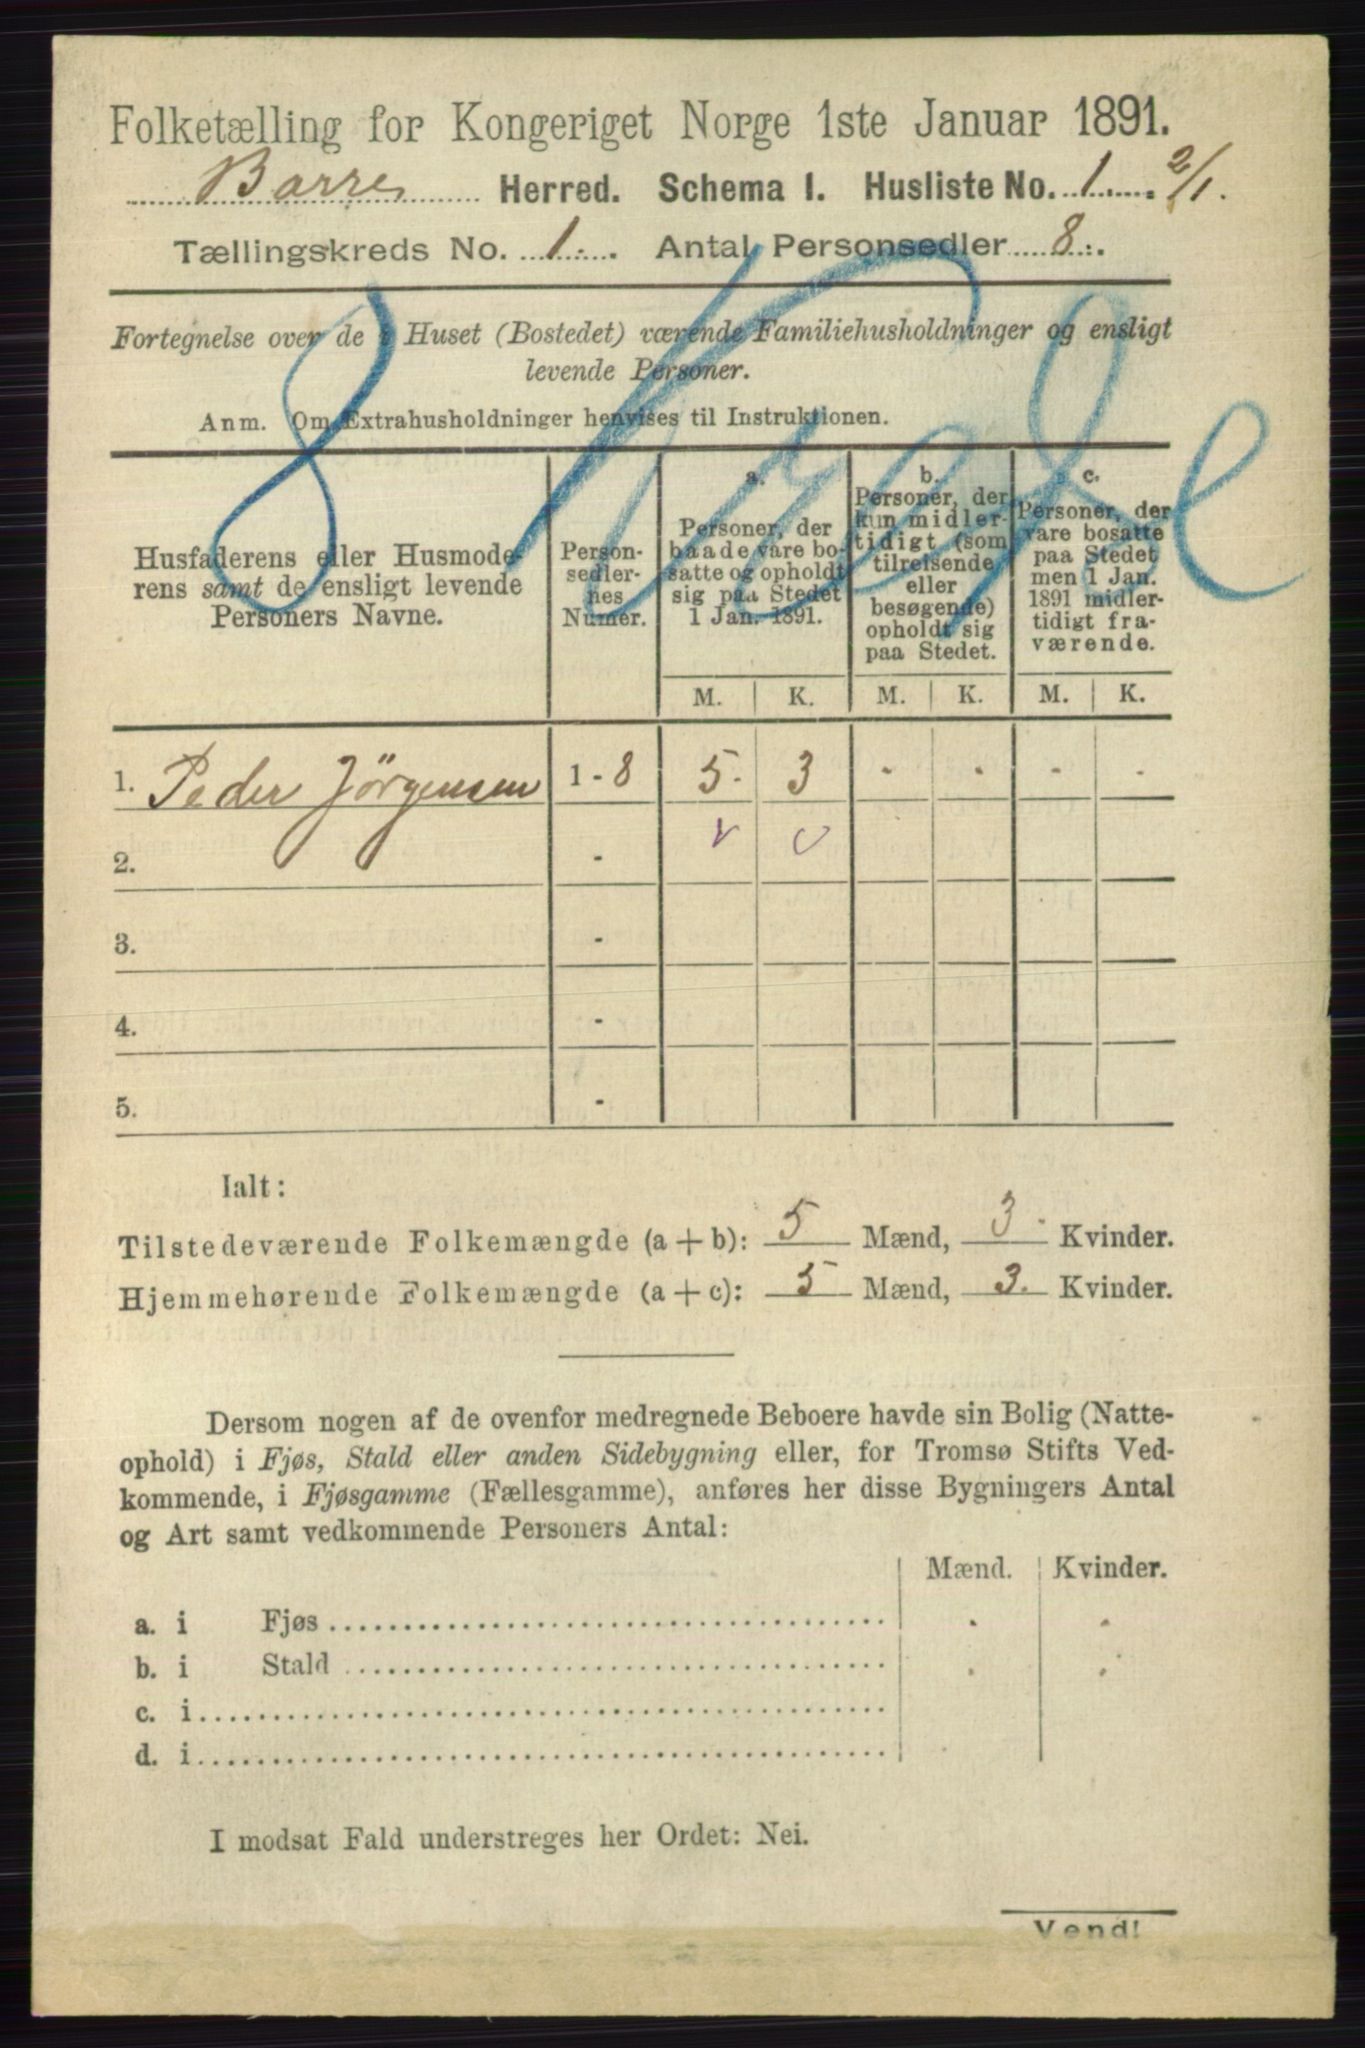 Folketælling for Kongeriget Norge 1ste Januar 1891.
Borre Herred. Schema I. Husliste No. 1. 2/1.
Tællingskreds No. 1. Antal Personsedler 8.
Fortegnelse over de i Huset (Bostedet) værende Familiehusholdninger og ensligt
levende Personer.
Anm. Om Extrahusholdninger henvises til Instruktionen.
Husfaderens eller Husmode-
rens samt de ensligt levende
Personers Navne.
Person-
sedler-
nes
Numer.
a.
Personer, der
baade vare bo-
satte og opholdt
sig paa Stedet
1 Jan. 1891.
b.
Personer, der
kun midler-
tidigt (som
tilreisende
eller
besøgende)
opholdt sig
paa Stedet.
c.
Personer, der
vare bosatte
paa Stedet
men 1 Jan.
1891 midler-
tidigt fra-
værende.
M. K. M. K. M. K.
1. Peder Jörgensen 1 - 8 5. 3 - - - -
2. -
3. -
4. -
5. -
Ialt:
Tilstedeværende Folkemængde (a + b): 5 Mænd, 3. Kvinder.
Hjemmehørende Folkemængde (a + c): 5 Mænd, 3. Kvinder.
Dersom nogen af de ovenfor medregnede Beboere havde sin Bolig (Natte-
ophold) i Fjøs, Stald eller anden Sidebygning eller, for Tromsø Stifts Ved-
kommende, i Fjøsgamme (Fællesgamme), anføres her disse Bygningers Antal
og Art samt vedkommende Personers Antal:
Mænd. Kvinder.
a. i Fjøs
b. i Stald
c. i
d. i
I modsat Fald understreges her Ordet: Nei.
Vend!